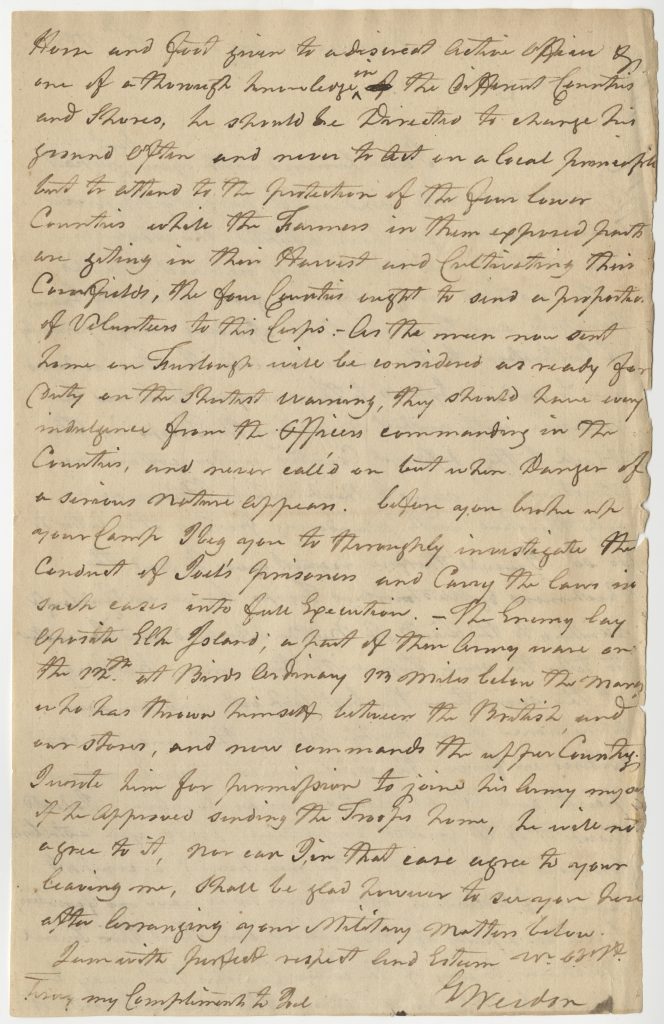 Horse and foot given to a discreet Active Officer &
one of a thorough knowledge in the Different Counties
and Shores, he should be Directed to change his
ground Often and never to Act on a local principle
but to attend to the protection of the four lower
Counties while the Farmers in them exposed parts
are geting in their Harvest and Cultivating their
Cornfields, the four Counties ought to send a proportion
of Volunteers to this Corps. - As the men now sent
home on Furlough will be considered as ready for
Duty on the Shortest Warning, they should have every
indulgence from the Officers commanding in the
Counties, and never call'd on but when Danger of
a serious Nature appears. before you broke up
your Camp I beg you to thoroughly investigate the
Conduct of prisoners and Carry the laws in
such cases into full Execution. - The Enemy lay
oposite Elk Island; a part of their Army ware on
the 12th. at Birds Ordinary 13 Miles below the Marqs
who has thrown himself between the British and
our stores, and now commands the upper Country.
I wrote him for permission to joine his Army myself
if he Approved sending the Troops home, he will not
agree to it, Nor can I, in that case agree to your
leaving me, Shall be glad however to see you here
after Arranging your Military Matters below.
I am with perfect respect and Esteem
my Compliments to
G Weedon